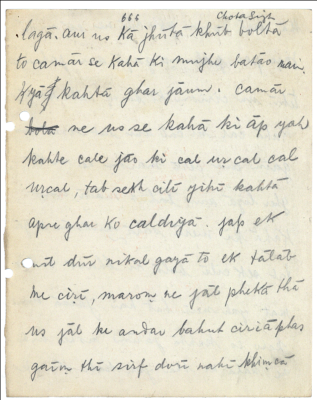 666 Chota Sigh
lagā. aur us kā jhuṭā khūb boltā
to camār se kahā ki mujhe batao main
kyā kahtā ghar jāum. camār
ne us se kahā ki āp yah
kahte cale jāo ki cal uṛcal cal
uṛcal, tab seṭh cilī yihī kahtā
apne ghar ko caldiyā. jap ek
mīl dūr nikal gayā to ek tālāb
me ciṛī, maroṃ ne jāl phekā thī
us jāl ke andar bahut ciṛiā phas
gaīṃ thī sirf dorī nahī khimcā